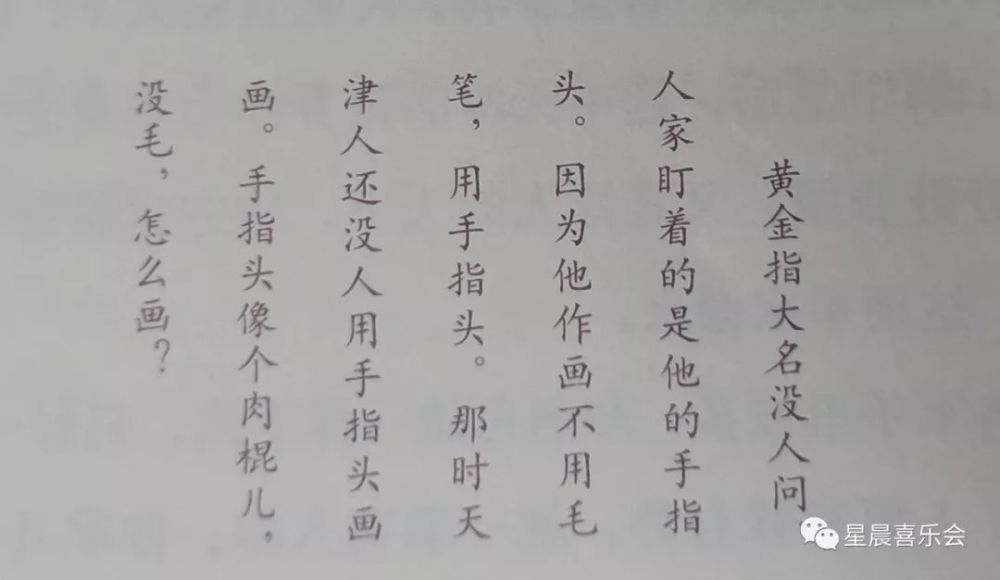 黄金指大名没人问
人家盯着的是他的手指
头。因为他作画不用毛
笔，用手指头。那时天
津人还没人用手指头画
画。手指头像个肉棍儿，
没毛，怎么画？
星晨喜乐会